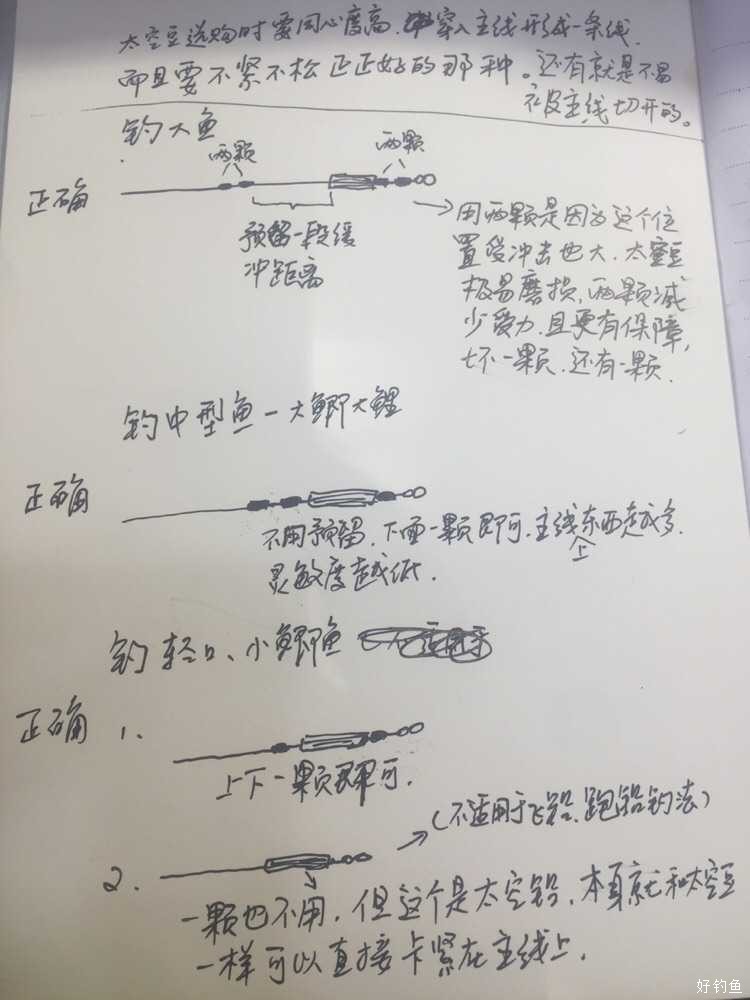 太空豆选购时要同心度高，穿入主线形成一条线，
而且要不紧不松正正好的那种。还有就是不易
被主线切开的。
钓大鱼
两颗
两颗
正确
预留一段缓
冲距离
→用两颗是因为这个位
置受冲击也大．太空豆
极易磨损，两颗减
少受力，且更有保障，
坏一颗．还有一颗．
钓中型鱼－大鲫大鲤
正确
不用预留．下面一颗即可．主线上东西越多．
灵敏度越低．
钓轻口、小鲫鱼
正确 1、
上下一颗即可．
2．
（不适用于飞铅、跑铅钓法）
一颗也不用，但这个是太空铅，本身就和太空豆
一样可以直接卡紧在主线上．
好钓鱼